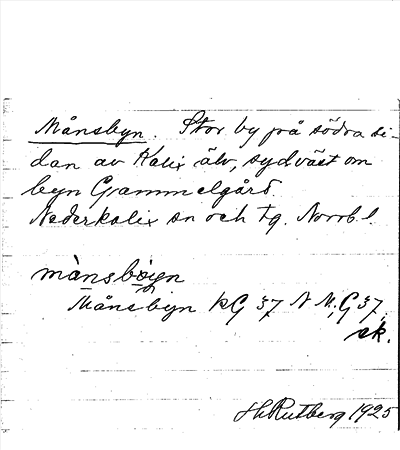 Månsbyn. Stor by på södra si-
dan av Kalix älv, sydväst om
byn Grammelgård.
Nederkalix sn och tg. Norrb. l.
månsbö̱i̯n
Månsbyn KG 37 N N; G 37,
sk.
H Rutberg 1925